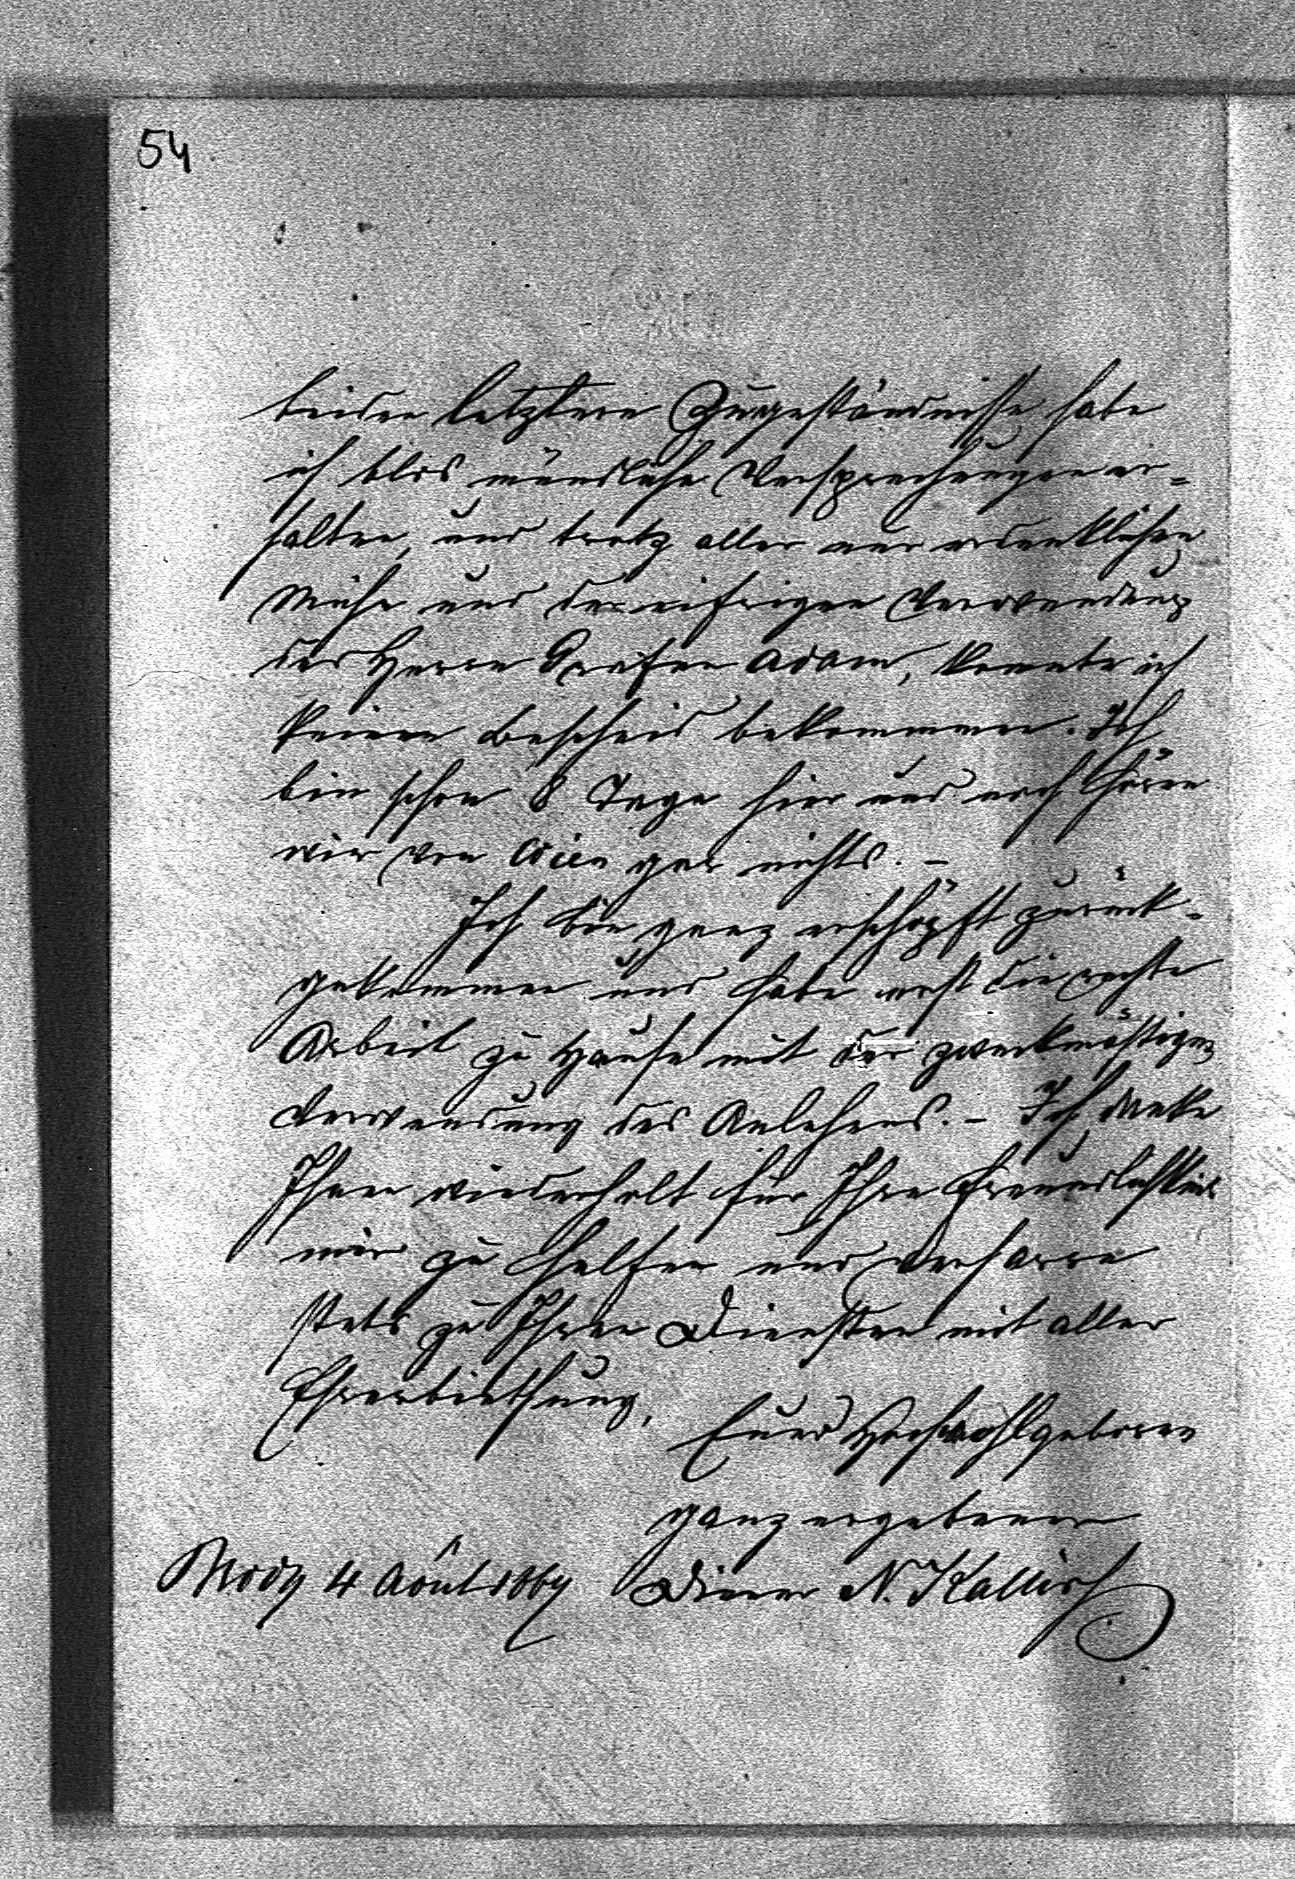 54
beiden letztern Zugeständnisse habe
ich blos mündliche Versprechungen er=
halten, und trotz aller nur erdenklichen
Mühe und der eifrigen Verwendung
des Herrn Grafen Adam, konnte ich
keinen Bescheid bekommen. Ich
bin schon 8 Tage hier und noch hören
wir von Wien gar nichts. –
Ich bin ganz erschöpft zurück=
gekommen und habe erst die rechte
Arbeit zu Hause mit der zweckmäßigen
Verwendung des Anlehens. – Ich danke
Ihnen wiederholt für Ihre Freundlichkeit
mir zu helfen und verharre
stets zu Ihren Diensten mit aller
Ehrerbiethung,
Euer Hochwohlgeboren
ganz ergebener
Brody 4 Août 1869 Diener N. Kallir